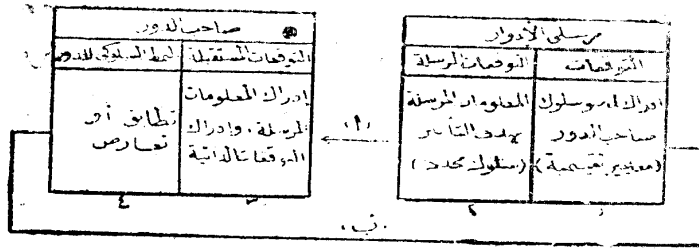 مرسلي الأدوار
التوقعات
التوقعات المرسلة
ادراك لدور وسلوك
صاحب الدور
(معايير تقييمية)
المعلومات المرسلة
بهدف التأثير
(سلوك محدد)
١
٢
(أ)
صاحب الدور
التوقعات المستقبلة
النمط السلوكي للدور
إدراك المعلومات
المرسلة، وإدراك
التوقعات الذاتية
تطابق أو
تعارض
٣
٤
(ب)